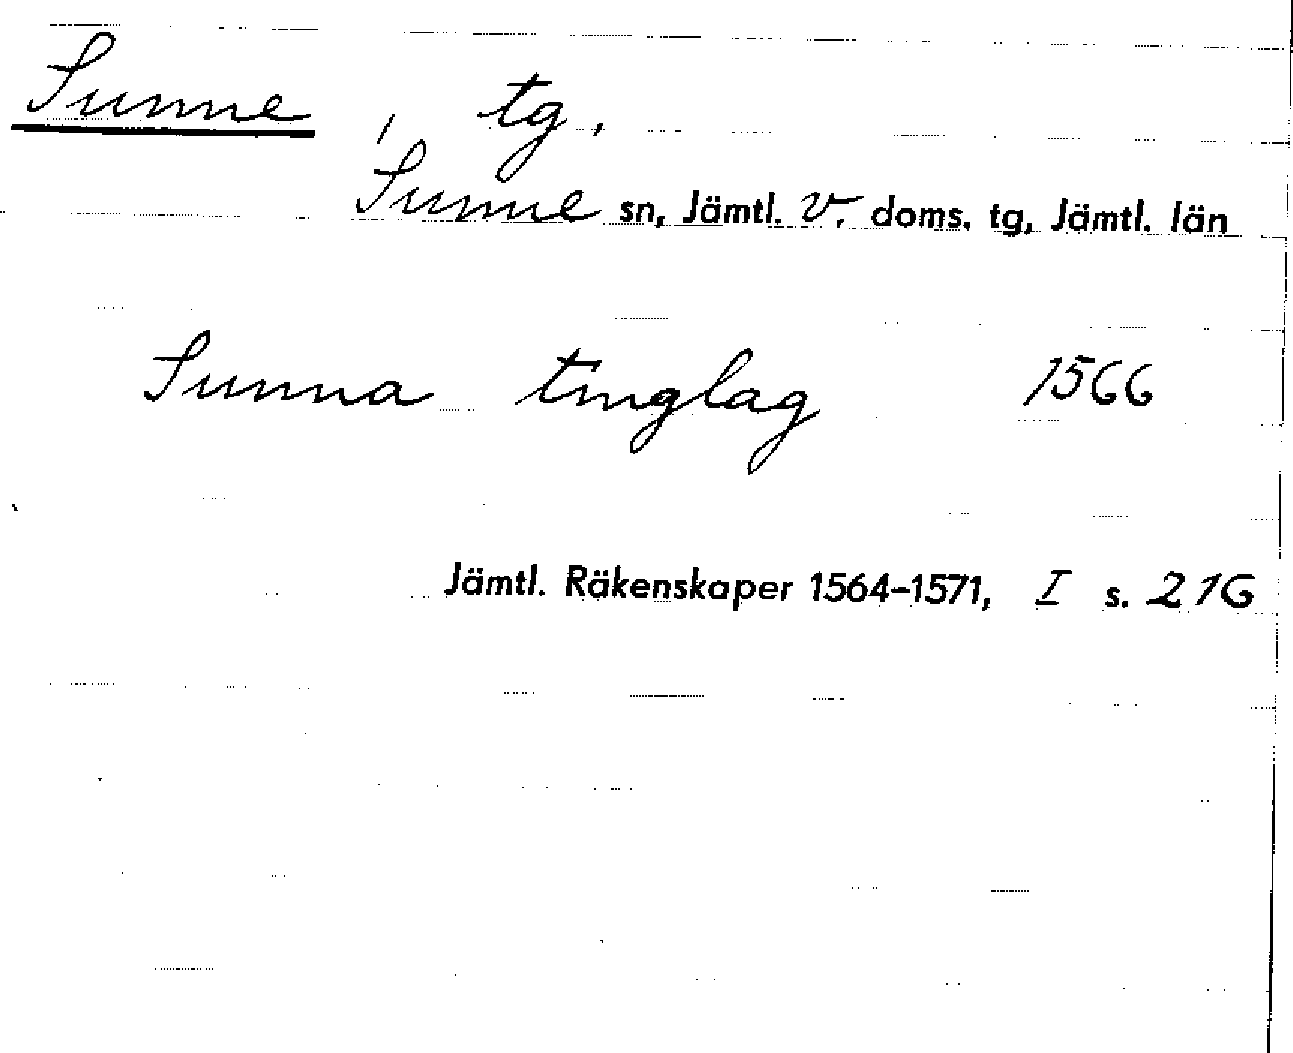 Sunne, tg.
Sunne sn, Jämtl. v. doms. tg, Jämtl. län
Sunna tinglag 1566
Jämtl. Räkenskaper 1564-1571, I s. 216